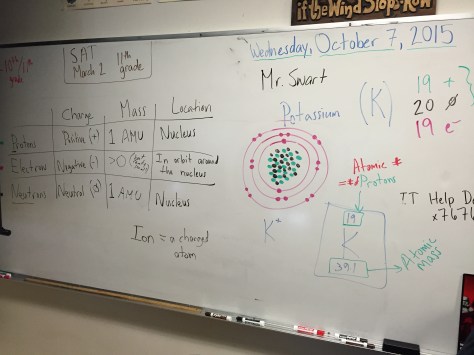 if the Wind Stops Row
Wednesday, October 7, 2015
SAT
March 2
11th
grade
grade
Mr. Swart
Potassium (K)
19 +
20 ø
19 e-
Charge Mass Location
Protons Positive (+) 1 AMU Nucleus
Electron Negative (-) >0 In orbit around
the nucleus
Neutrons Neutral (ø) 1 AMU Nucleus
Ion = a charged
atom
K+
Atomic #
= # Protons
19
K
39.1
Atomic
mass
IT Help De
x767